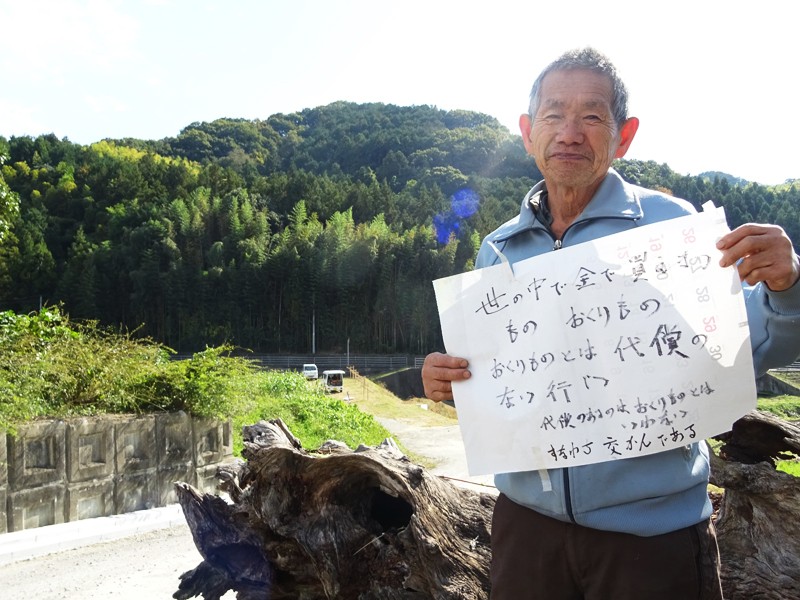 世の中で金で買えるもの
もの おくりもの
おくりものとは 代償の
ない 行い
代償のあるのは、おくりものとは
いわない
すなわち 交かんである